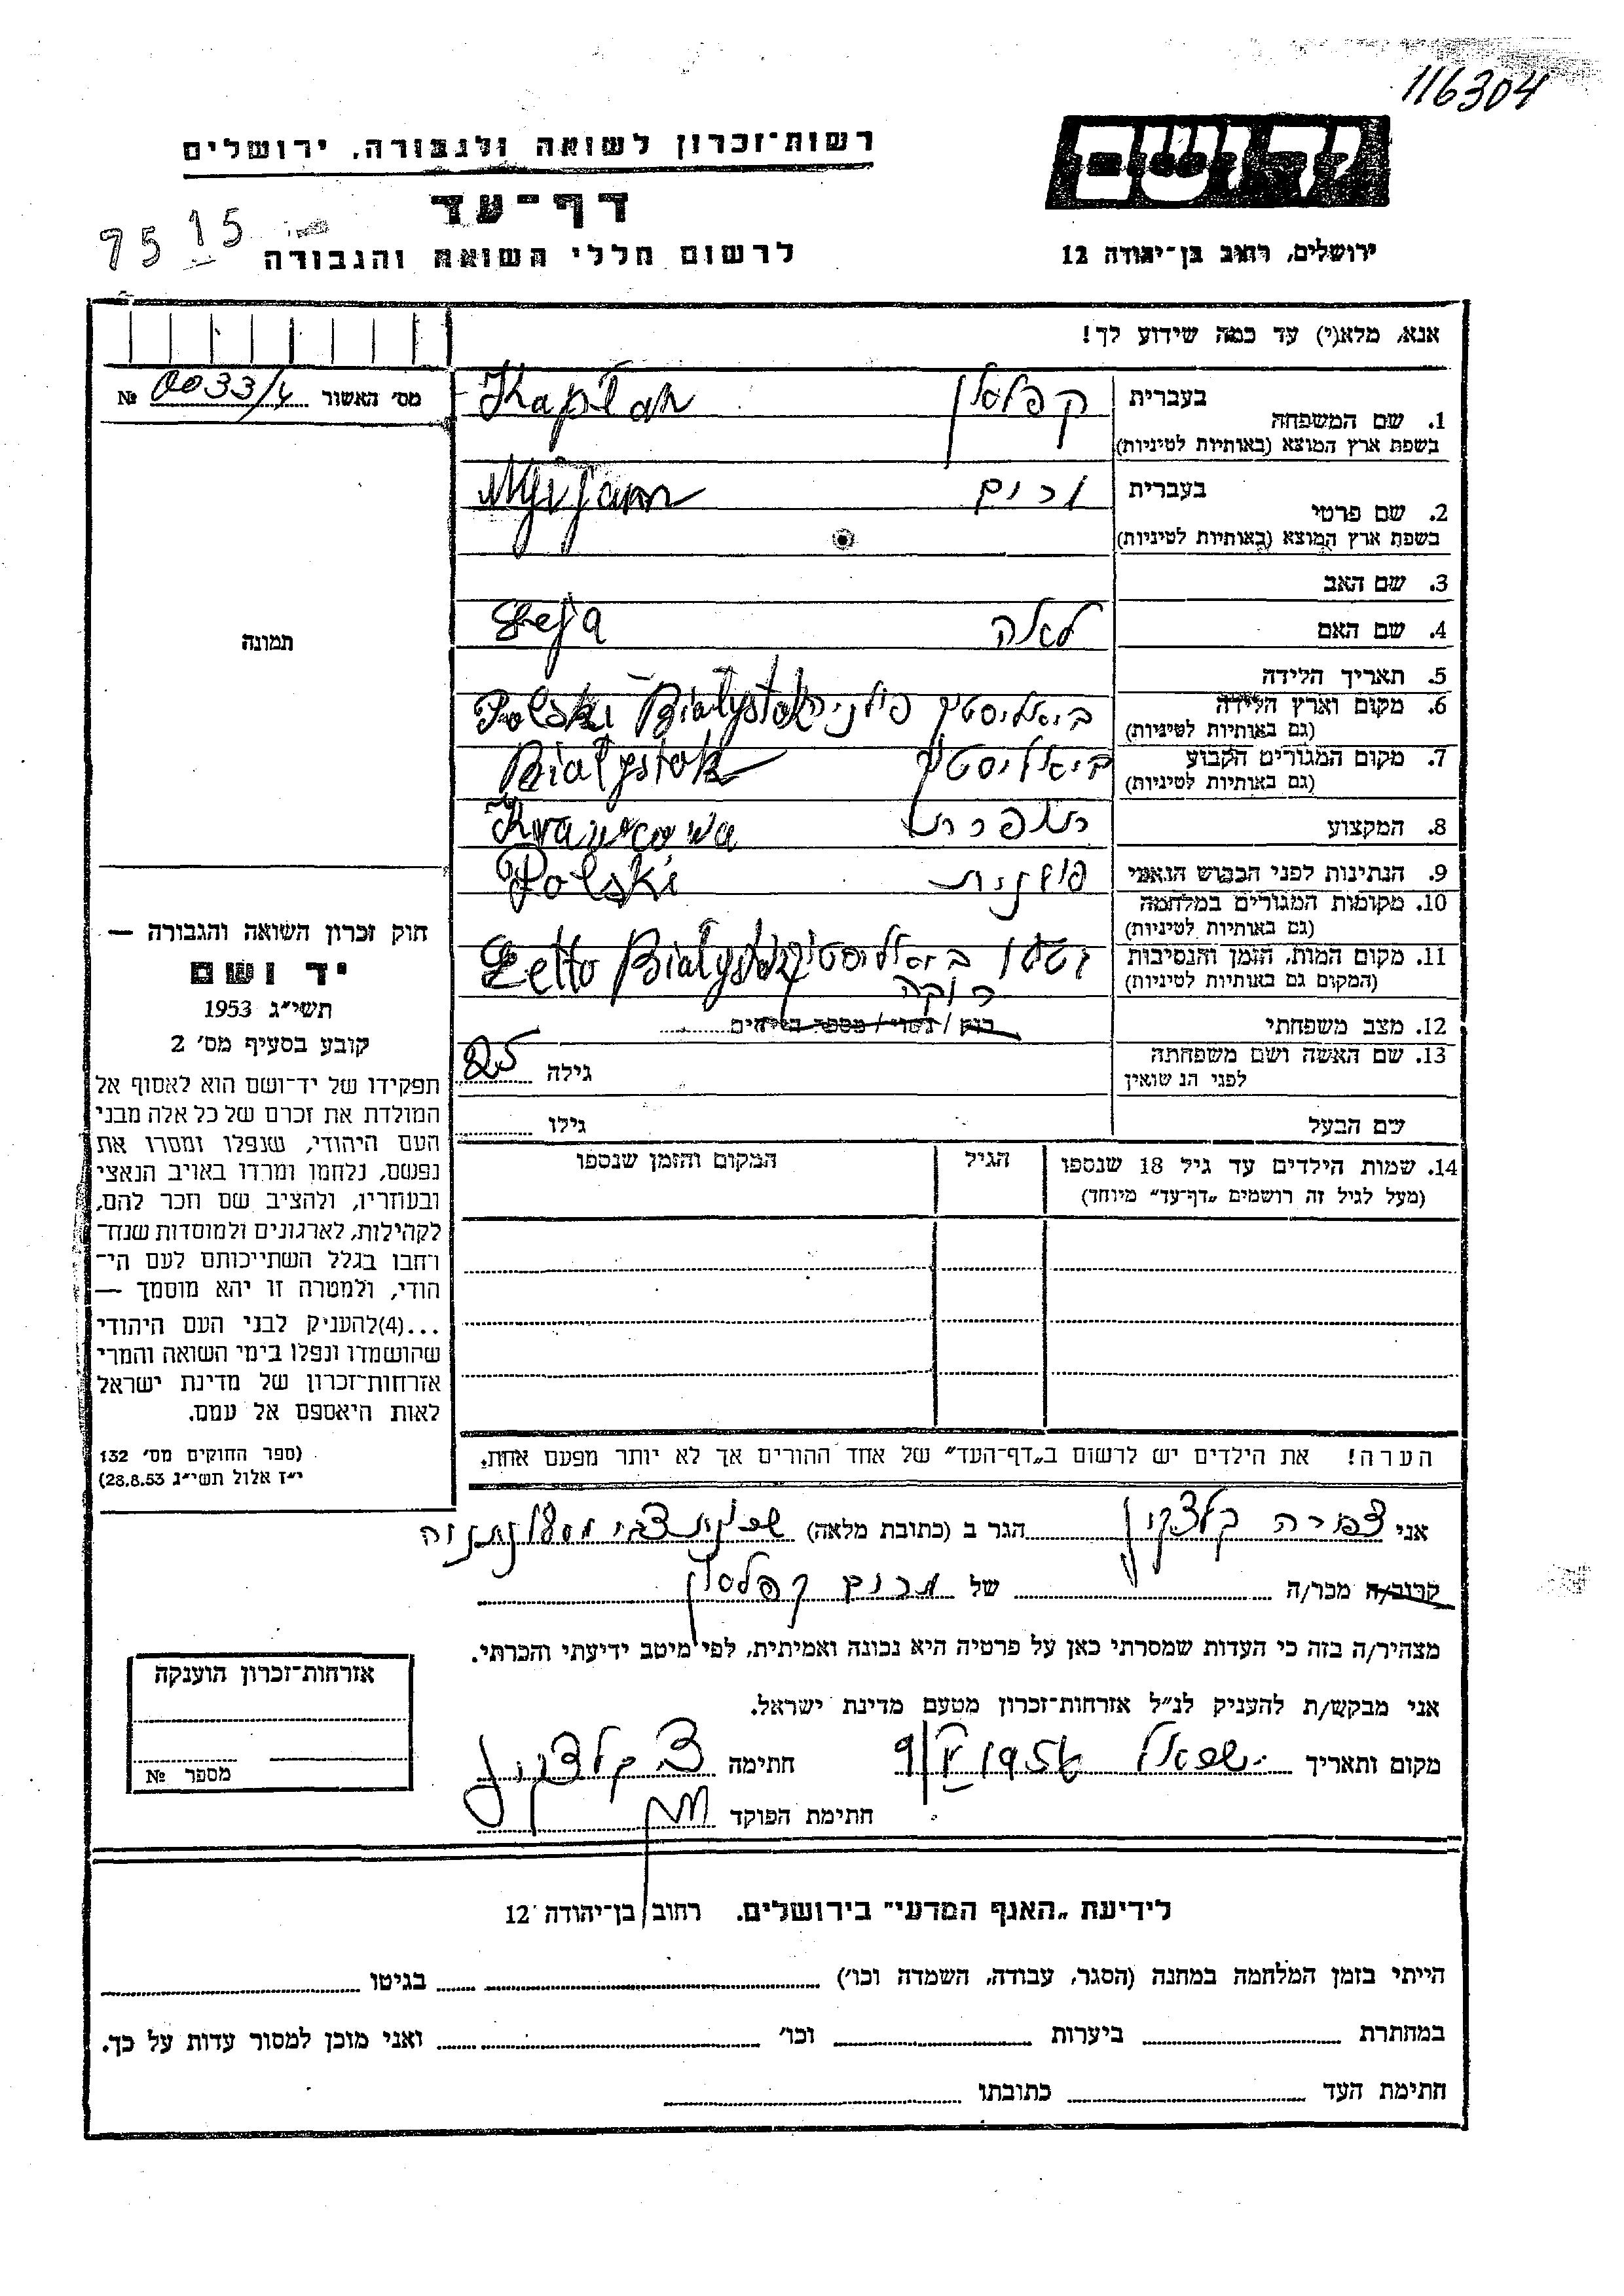 116304
יד ושם
רשות־זכרון לשואה ולגבורה, ירושלים
דף־עד
לרשום חללי השואה והגבורה
75 15
ירושלים, רחוב בן־יהודה 12
אנא, מלא(י) עד כמה שידוע לך!
מס׳ האשור 0033/4 №
תמונה
1. שם המשפחה בעברית קפלאן Kaplan
בשפת ארץ המוצא (באותיות לטיניות)
2. שם פרטי בעברית מרים Myrjam
בשפת ארץ המוצא (באותיות לטיניות)
3. שם האב
4. שם האם לאה Leja
5. תאריך הלידה
6. מקום וארץ הלידה ביאליסטוק פולניה Polski Białystok
(גם באותיות לטיניות)
7. מקום המגורים הקבוע ביאליסטוק Białystok
(גם באותיות לטיניות)
8. המקצוע תופרת Krawcowa
9. הנתינות לפני הכבוש הנאצי פולנית Polski
10. מקומות המגורים במלחמה
(גם באותיות לטיניות)
11. מקום המות, הזמן והנסיבות גטו ביאליסטוק Getto Białystok
(המקום גם באותיות לטיניות)
12. מצב משפחתי רוקה רווק / נשוי / מספר הילדים
13. שם האשה ושם משפחתה גילה 25
לפני הנשואין
שם הבעל גילו
14. שמות הילדים עד גיל 18 שנספו הגיל המקום והזמן שנספו
(מעל לגיל זה רושמים „דף־עד״ מיוחד)
הערה! את הילדים יש לרשום ב„דף־העד״ של אחד ההורים אך לא יותר מפעם אחת.
חוק זכרון השואה והגבורה —
יד ושם
תשי״ג 1953
קובע בסעיף מס׳ 2
תפקידו של יד־ושם הוא לאסוף אל
המולדת את זכרם של כל אלה מבני
העם היהודי, שנפלו ומסרו את
נפשם, נלחמו ומרדו באויב הנאצי
ובעוזריו, ולהציב שם וזכר להם,
לקהילות, לארגונים ולמוסדות שנח־
רחבו בגלל השתייכותם לעם הי־
הודי, ולמטרה זו יהא מוסמך —
...(4)להעניק לבני העם היהודי
שהושמדו ונפלו בימי השואה והמרי
אזרחות־זכרון של מדינת ישראל
לאות היאספם אל עמם.
(ספר החוקים מס׳ 132
י״ז אלול תשי״ג 28.8.53)
אני צפורה הגר ב (כתובת מלאה)
קרוב/ה מכר/ה של מרים קפלאן
מצהיר/ה בזה כי העדות שמסרתי כאן על פרטיה היא נכונה ואמיתית, לפי מיטב ידיעתי והכרתי.
אני מבקש/ת להעניק לנ״ל אזרחות־זכרון מטעם מדינת ישראל.
מקום ותאריך 9/V 1956 חתימה
חתימת הפוקד
אזרחות־זכרון הוענקה
מספר №
לידיעת „האגף המדעי״ בירושלים. רחוב בן־יהודה 12
הייתי בזמן המלחמה במחנה (הסגר, עבודה, השמדה וכו׳) בגיטו
במחתרת ביערות וכו׳ ואני מוכן למסור עדות על כך.
חתימת העד כתובתו